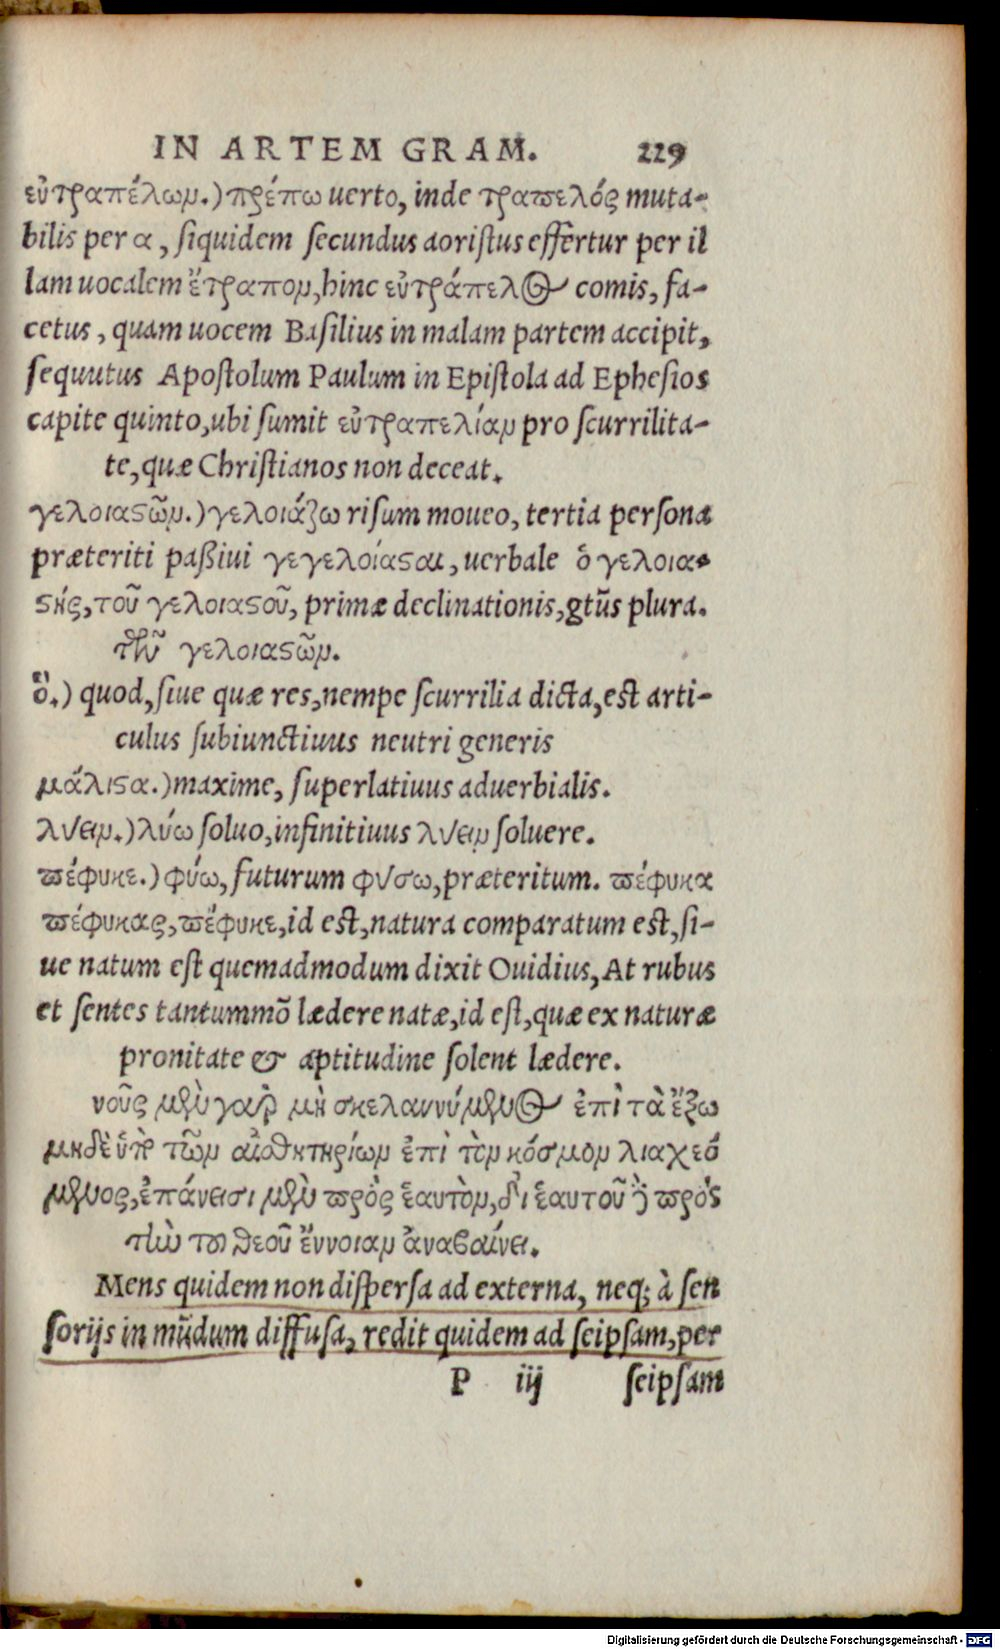 IN ARTEM GRAM. 229
εὐτραπέλων.) τρέπω uerto, inde τραπελός muta-
bilis per α, siquidem secundus aoristus effertur per il
lam uocalem ἔτραπον, hinc εὐτράπελος comis, fa-
cetus, quam uocem Basilius in malam partem accipit,
sequutus Apostolum Paulum in Epistola ad Ephesios
capite quinto, ubi sumit εὐτραπελίαν pro scurrilita-
te, quæ Christianos non deceat.
γελοιαϛῶν.) γελοιάζω risum moueo, tertia persona
præteriti paßiui γεγελοίαϛαι, uerbale ὁ γελοια-
ϛής, τοῦ γελοιαϛοῦ, primæ declinationis, gtūs plura.
τῶν γελοιαϛῶν.
ὅ.) quod, siue quæ res, nempe scurrilia dicta, est arti-
culus subiunctiuus neutri generis
μάλιϛα.) maxime, superlatiuus aduerbialis.
λύειν.) λύω soluo, infinitiuus λύειν soluere.
πέφυκε.) φύω, futurum φύσω, præteritum. πέφυκα
πέφυκας, πέφυκε, id est, natura comparatum est, si-
ue natum est quemadmodum dixit Ouidius, At rubus
et sentes tantummō lædere natæ, id est, quæ ex naturæ
pronitate & aptitudine solent lædere.
νοῦς μὲν γὰρ μὴ σκεδαννύμενος ἐπὶ τὰ ἔξω
μηδὲ ὑπὸ τῶν αἰσθητηρίων ἐπὶ τὸν κόσμον διαχεό
μενος, ἐπάνεισι μὲν πρὸς ἑαυτὸν, δι ἑαυτοῦ δὲ πρὸς
τὴν τοῦ θεοῦ ἔννοιαν ἀναβαίνει.
Mens quidem non dispersa ad externa, neq; à sen
sorijs in mūdum diffusa, redit quidem ad seipsam, per
P iij seipsam
Digitalisierung gefördert durch die Deutsche Forschungsgemeinschaft - DFG